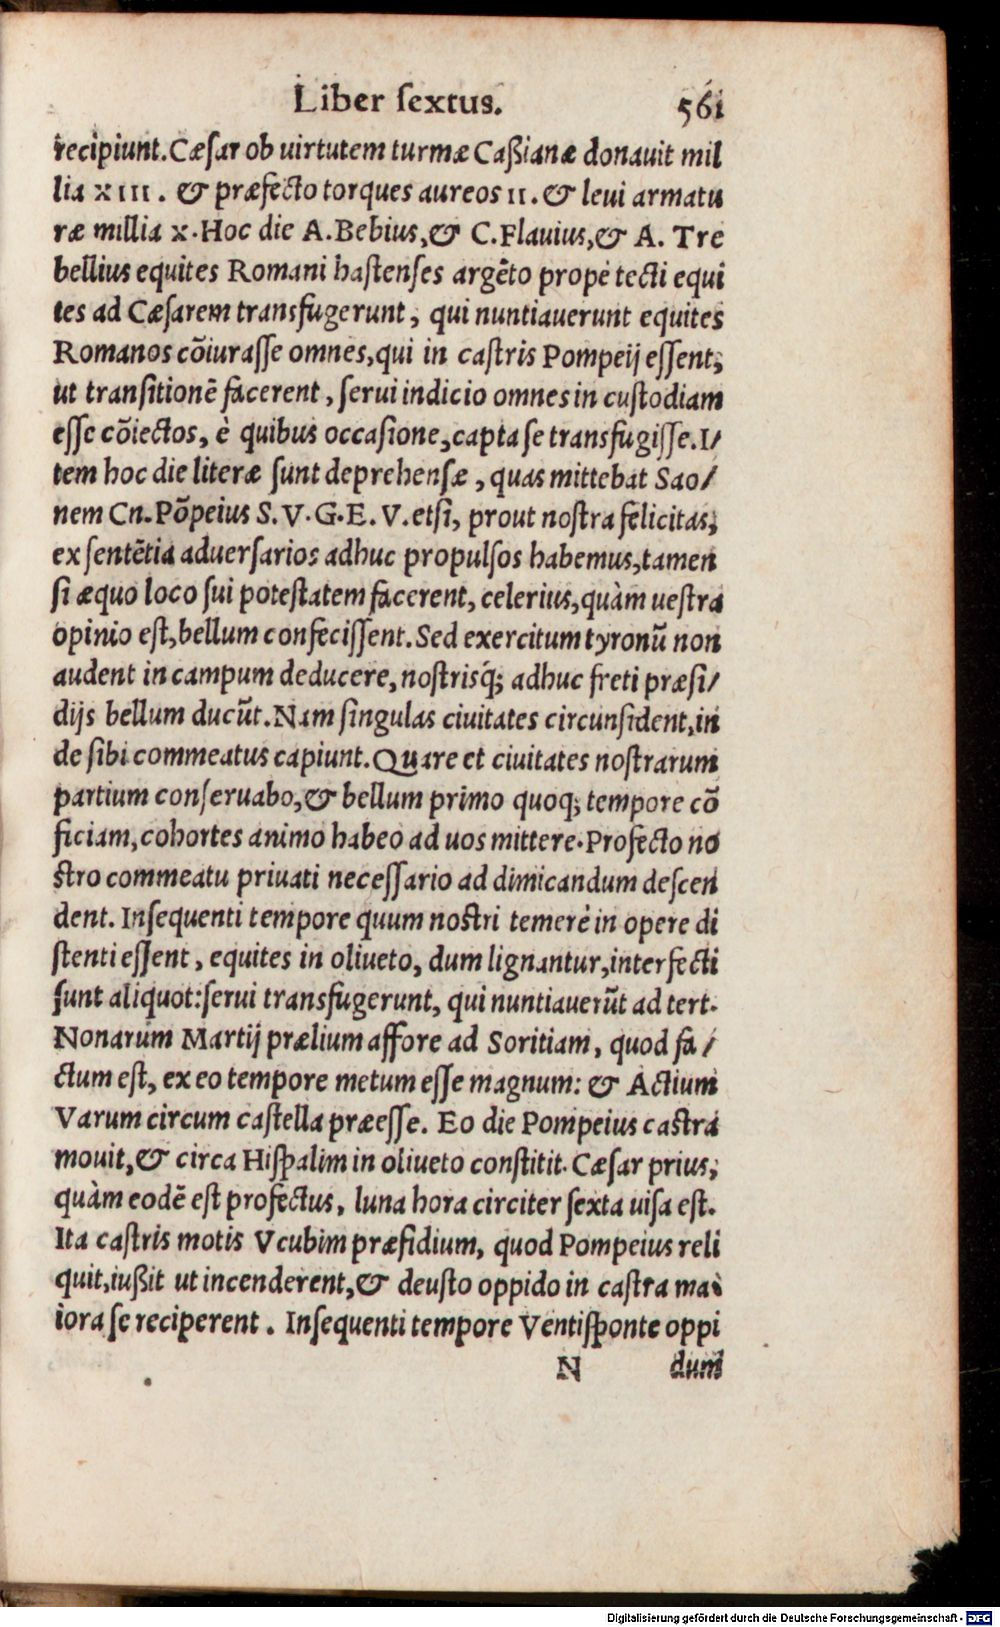 Liber ſextus. 561
recipiunt. Cæſar ob uirtutem turmæ Caßianæ donauit mil
lia XIII. & præfecto torques aureos II. & leui armatu
ræ millia X. Hoc die A. Bebius, & C. Flauius, & A. Tre
bellius equites Romani haſtenſes argẽto propè tecti equi
tes ad Cæſarem transfugerunt, qui nuntiauerunt equites
Romanos cõiuraſſe omnes, qui in caſtris Pompeij eſſent,
ut tranſitionẽ facerent, ſerui indicio omnes in cuſtodiam
eſſe cõiectos, è quibus occaſione, capta ſe transfugiſſe. I/
tem hoc die literæ ſunt deprehenſæ, quas mittebat Sao/
nem Cn. Põpeius S. V. G. E. V. etſi, prout noſtra felicitas,
ex ſentẽtia aduerſarios adhuc propulſos habemus, tamen
ſi æquo loco ſui poteſtatem facerent, celerius, quàm ueſtra
opinio eſt, bellum confeciſſent. Sed exercitum tyronũ non
audent in campum deducere, noſtrisq́; adhuc freti præſi/
dijs bellum ducũt. Nam ſingulas ciuitates circunſident, in
de ſibi commeatus capiunt. Quare et ciuitates noſtrarum
partium conſeruabo, & bellum primo quoq; tempore cõ
ficiam, cohortes animo habeo ad uos mittere. Profecto no
ſtro commeatu priuati neceſſario ad dimicandum deſcen
dent. Inſequenti tempore quum noſtri temerè in opere di
ſtenti eſſent, equites in oliueto, dum lignantur, interfecti
ſunt aliquot: ſerui transfugerunt, qui nuntiauerũt ad tert.
Nonarum Martij prælium affore ad Soritiam, quod fa/
ctum eſt, ex eo tempore metum eſſe magnum: & Actium
Varum circum caſtella præeſſe. Eo die Pompeius caſtra
mouit, & circa Hiſpalim in oliueto conſtitit. Cæſar prius,
quàm eodẽ eſt profectus, luna hora circiter ſexta uiſa eſt.
Ita caſtris motis Vcubim præſidium, quod Pompeius reli
quit, iußit ut incenderent, & deuſto oppido in caſtra ma
iora ſe reciperent. Inſequenti tempore Ventiſponte oppi
N dum
Digitalisierung gefördert durch die Deutsche Forschungsgemeinschaft - DFG